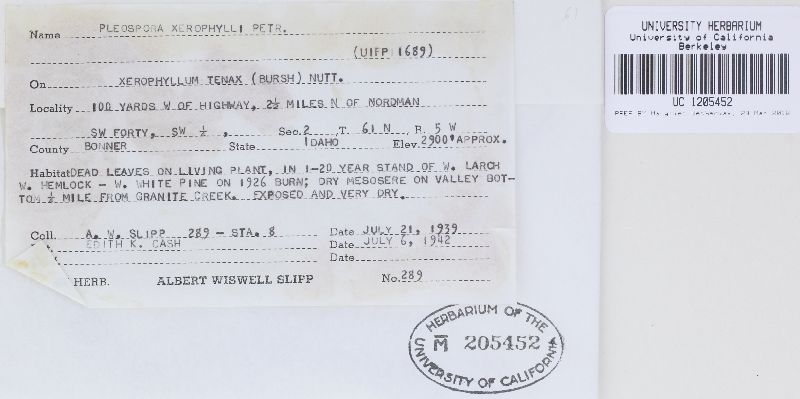 Name PLEOSPORA XEROPHYLLI PETR.
(UIFP 1689)
On XEROPHYLLUM TENAX (BURSH) NUTT.
Locality 100 YARDS W OF HIGHWAY, 2½ MILES N OF NORDMAN
SW FORTY, SW ¼, Sec. 2 T. 61 N R. 5 W
County BONNER State IDAHO Elev. 2900' APPROX.
Habitat DEAD LEAVES ON LIVING PLANT, IN 1-20 YEAR STAND OF W. LARCH
W. HEMLOCK - W. WHITE PINE ON 1926 BURN; DRY MESOSERE ON VALLEY BOT-
TOM ½ MILE FROM GRANITE CREEK. EXPOSED AND VERY DRY.
Coll. A. W. SLIPP 289 - STA. 8 Date JULY 21, 1939
EDITH K. CASH Date JULY 6, 1942
Date
HERB. ALBERT WISWELL SLIPP No. 289
HERBARIUM OF THE
M 205452
UNIVERSITY OF CALIFORNIA
UNIVERSITY HERBARIUM
University of California
Berkeley
UC 1205452